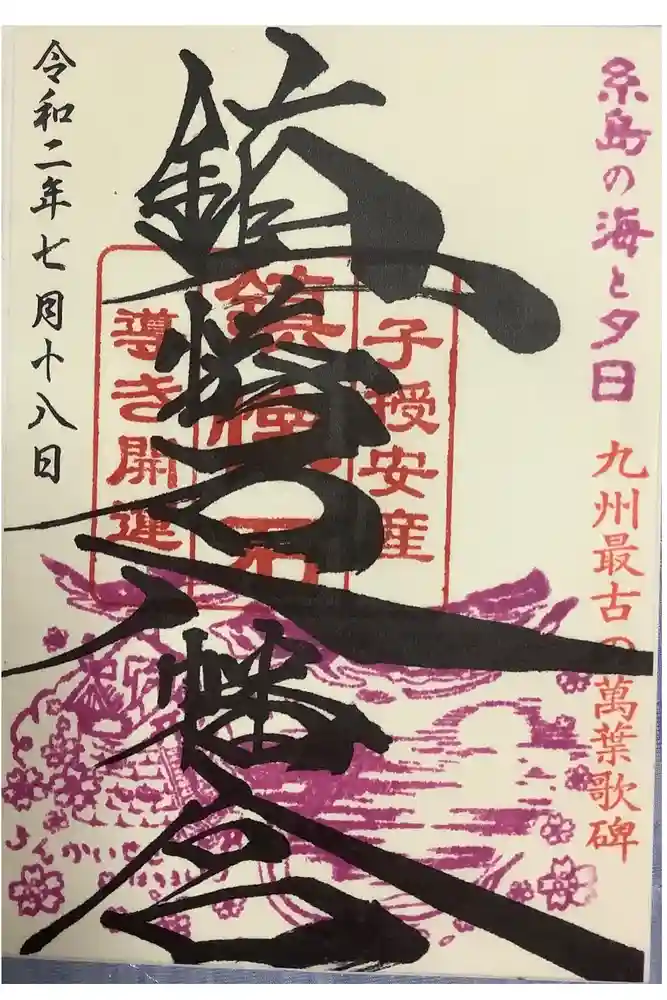 糸島の海と夕日
九州最古の萬葉歌碑
子授安産
鎮懐石
導き開運
鎮懐石八幡宮
令和二年七月十八日